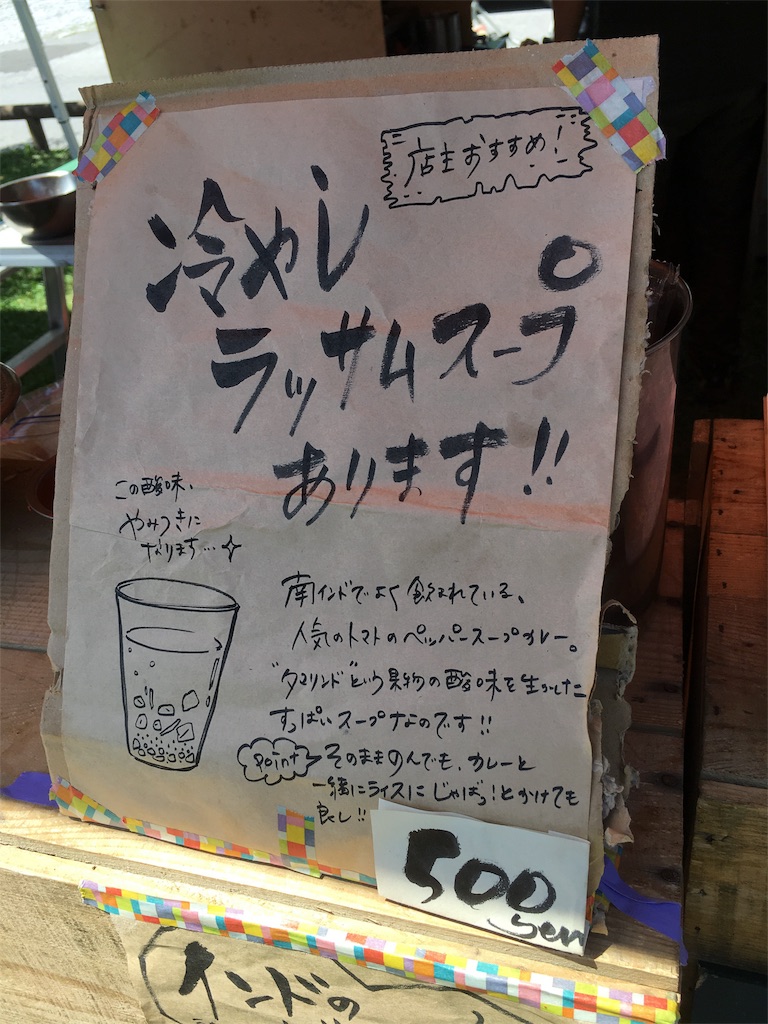 店主おすすめ!
冷やし
ラッサムスープ
あります!!
この酸味、
やみつきに
なります…
南インドでよく飲まれている、
人気のトマトのペッパースープカレー。
"タマリンド"という果物の酸味を生かした
すっぱいスープなのです!!
point
そのままのんでも、カレーと
一緒にライスにじゃばっ!とかけても
良し!!
500
yen
インドの